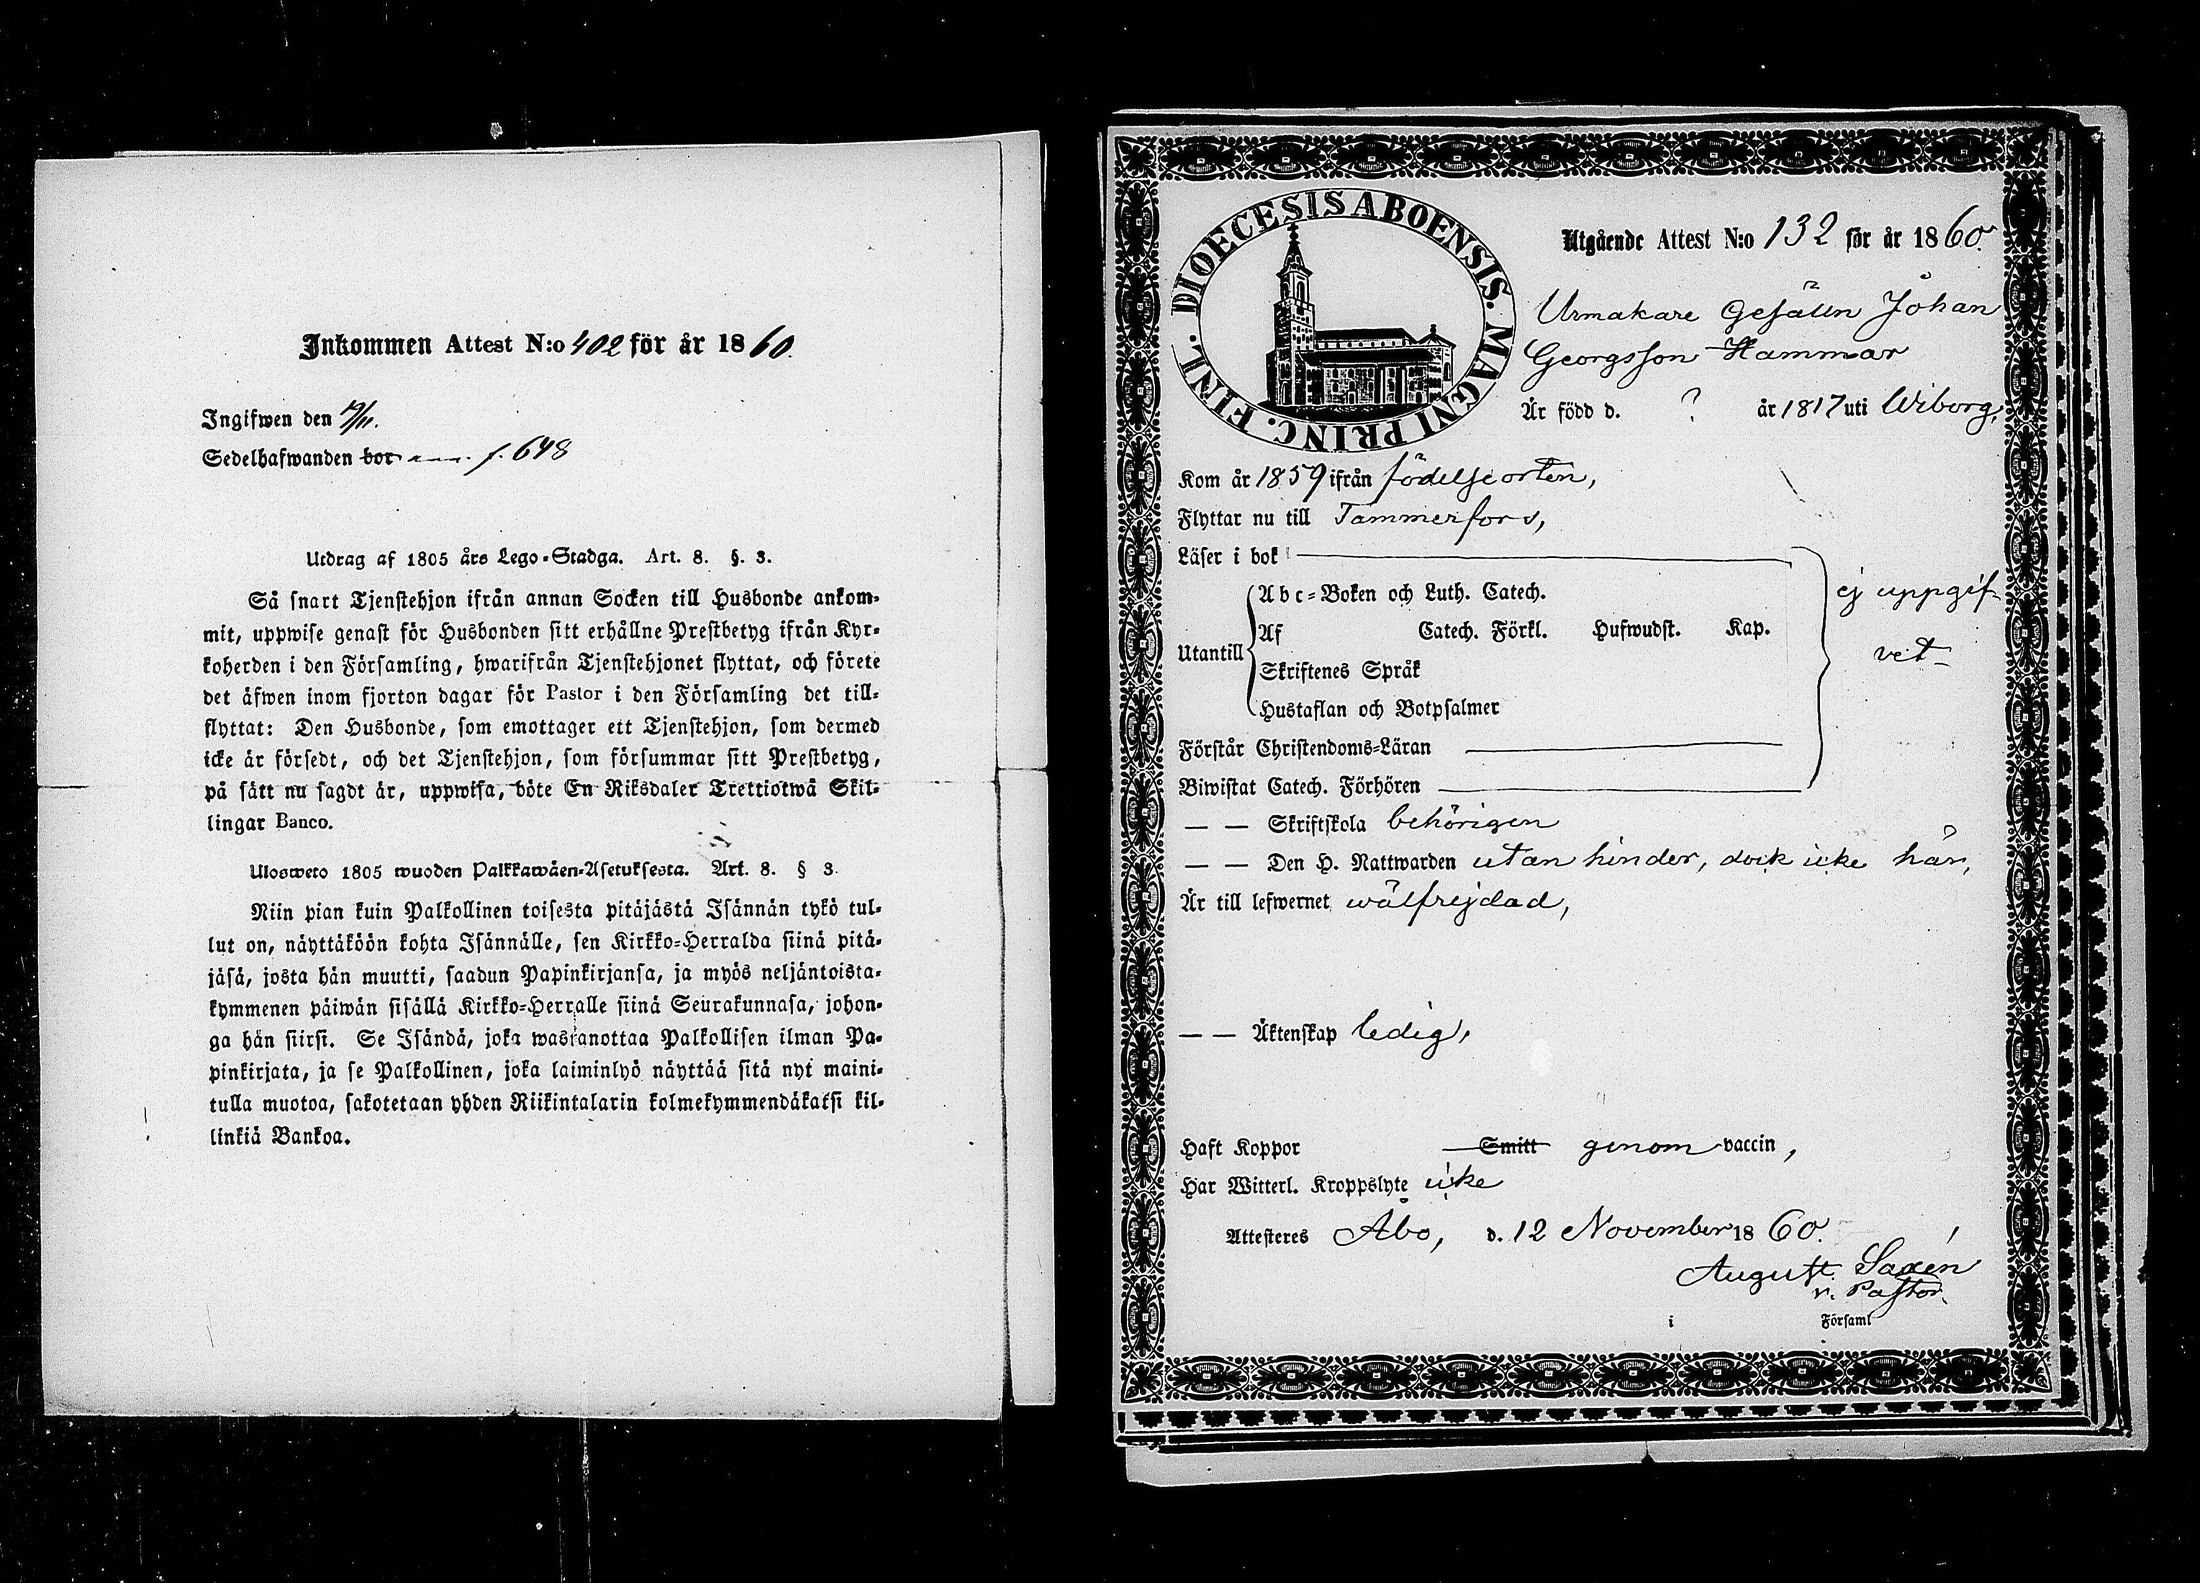 Inkommen Attest N:o 402 för år 1860.
Ingifwen den 19/11.
Sedelhafwanden bor f. 648
Utdrag af 1805 års Lego-Stadga. Art. 8. §. 3.
Så snart Tjenstehjon ifrån annan Socken till Husbonde ankom-
mit, uppwise genast för Husbonden sitt erhållne Prestbetyg ifrån Kyr-
koherden i den Församling, hwarifrån Tjenstehjonet flyttat, och förete
det äfwen inom fjorton dagar för Pastor i den Församling det till-
flyttat: Den Husbonde, som emottager ett Tjenstehjon, som dermed
icke är försedt, och det Tjenstehjon, som försummar sitt Prestbetyg,
på sätt nu sagdt är, uppwisa, böte En Riksdaler Trettiotwå Skil-
lingar Banco.
Ulosweto 1805 wuoden Palkkawäen-Asetuksesta. Art. 8. § 3.
Niin pian kuin Palkollinen toisesta pitäjästä Isännän tykö tul-
lut on, näyttäköön kohta Isännälle, sen Kirkko-Herralda siinä pitä-
jäsä, josta hän muutti, saadun Papinkirjansa, ja myös neljäntoista-
kymmenen päiwän sisällä Kirkko-Herralle siinä Seurakunnasa, johon-
ga hän siirsi. Se Isändä, joka wastanottaa Palkollisen ilman Pa-
pinkirjata, ja se Palkollinen, joka laiminlyö näyttää sitä nyt maini-
tulla muotoa, sakotetaan yhden Riikintalarin kolmekymmendäkaksi kil-
linkiä Bankoa.
DIOECESIS ABOENSIS. MAGNI PRINC. FINL.
Utgående Attest N:o 132 för år 1860.
Urmakare Gesälln Johan
Georgsson Hammar
Är född d. ? år 1817 uti Wiborg,
Kom år 1859 ifrån födelseorten,
Flyttar nu till Tammerfors,
Läser i bok
Abc-Boken och Luth. Catech.
ej uppgif-
Utantill Af Catech. Förkl. Hufwudst. Kap.
vet
Skriftenes Språk
Hustaflan och Botpsalmer
Förstår Christendoms-Läran
Biwistat Catech. Förhören
— — Skriftskola behörigen
— — Den H. Nattwarden utan hinder, dock icke här,
Är till lefwernet wälfrejdad,
— — Äktenskap ledig,
Haft Koppor Smitt genom vaccin,
Har Witterl. Kroppslyte icke
Attesteres Åbo, d. 12 November 1860.
August Saxén
v. Pastor.
i Församl